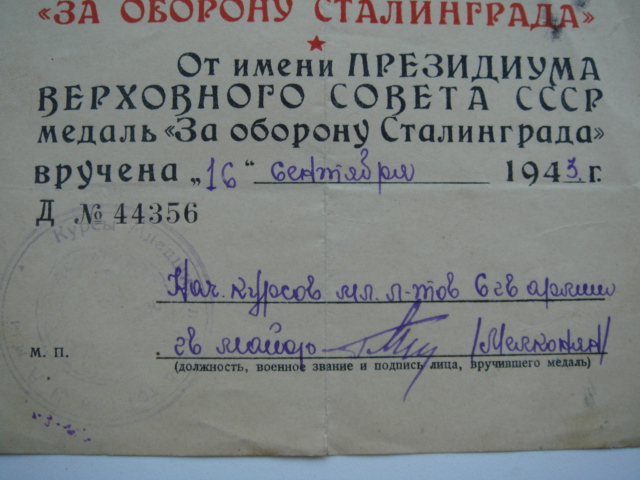 «ЗА ОБОРОНУ СТАЛИНГРАДА»
От имени ПРЕЗИДИУМА
ВЕРХОВНОГО СОВЕТА СССР
медаль «За оборону Сталинграда»
вручена „16“ сентября 1943. г.
Д № 44356
Курсы
Нач. курсов мл. л-тов 6 гв армии
М. П. гв майор /Мелконян/
(должность, военное звание и подпись лица, вручившего медаль)